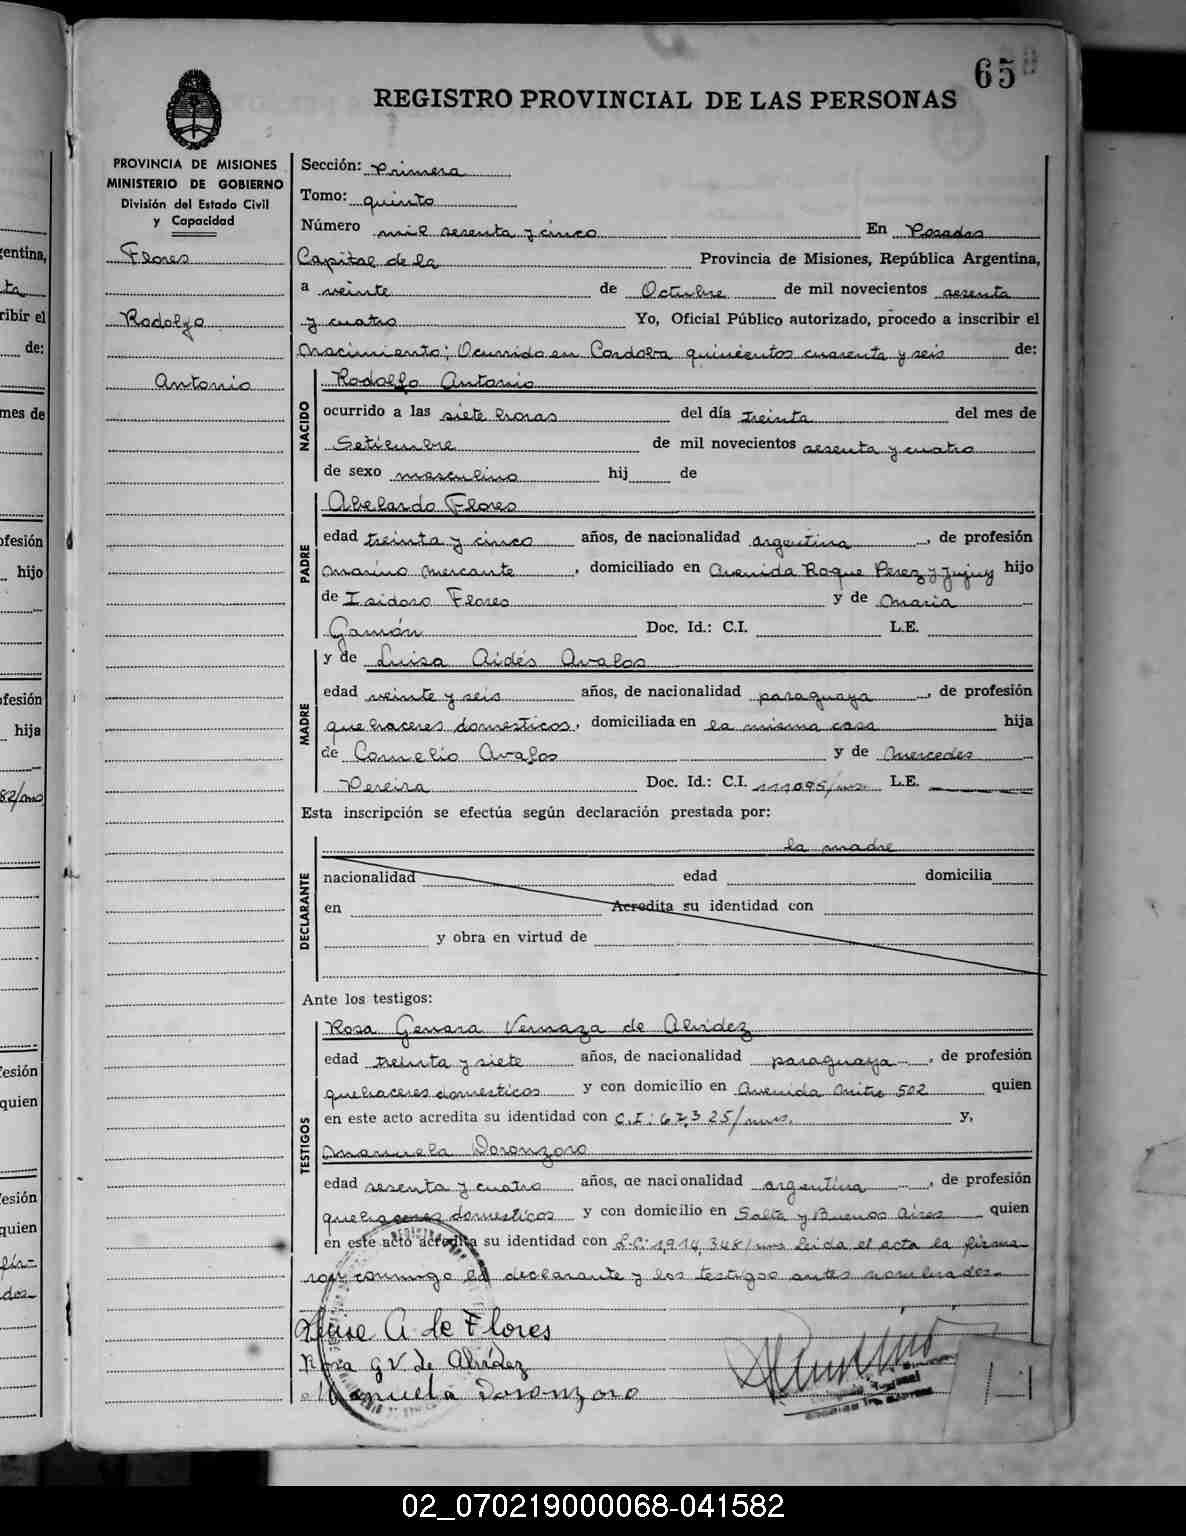 65
REGISTRO PROVINCIAL DE LAS PERSONAS
PROVINCIA DE MISIONES
MINISTERIO DE GOBIERNO
División del Estado Civil
y Capacidad
Flores
Rodolfo
Antonio
Sección: Primera
Tomo: quinto
Número mil sesenta y cinco En Posadas
Capital de la Provincia de Misiones, República Argentina,
a veinte de Octubre de mil novecientos sesenta
y cuatro Yo, Oficial Público autorizado, procedo a inscribir el
nacimiento; Ocurrido en Cordoba quinientos cuarenta y seis de:
NACIDO
Rodolfo Antonio
ocurrido a las siete horas del día treinta del mes de
Setiembre de mil novecientos sesenta y cuatro
de sexo masculino hij de
PADRE
Abelardo Flores
edad treinta y cinco años, de nacionalidad argentina, de profesión
marino mercante, domiciliado en Avenida Roque Perez y Jujuy hijo
de Isidoro Flores y de Maria
Gamón Doc. Id.: C.I. L.E.
MADRE
y de Luisa Aidés Avalos
edad veinte y seis años, de nacionalidad paraguaya, de profesión
quehaceres domesticos, domiciliada en la misma casa hija
de Cornelio Avalos y de Mercedes
Pereira Doc. Id.: C.I. 111095/mns. L.E.
Esta inscripción se efectúa según declaración prestada por:
DECLARANTE
la madre
nacionalidad edad domicilia
en Acredita su identidad con
y obra en virtud de
Ante los testigos:
TESTIGOS
Rosa Genara Vernaza de Alvidez
edad treinta y siete años, de nacionalidad paraguaya, de profesión
quehaceres domesticos y con domicilio en Avenida Mitre 502 quien
en este acto acredita su identidad con C.I: 67,325/mns. y,
Manuela Doronzoro
edad sesenta y cuatro años, de nacionalidad argentina, de profesión
quehaceres domesticos y con domicilio en Salta y Buenos Aires quien
en este acto acredita su identidad con L.C: 1,914,348/mns leida el acta la firma
ron conmigo la declarante y los testigos antes nombrados
Luisa A de Flores
Rosa G V de Alvidez
Manuela Doronzoro
02_070219000068-041582